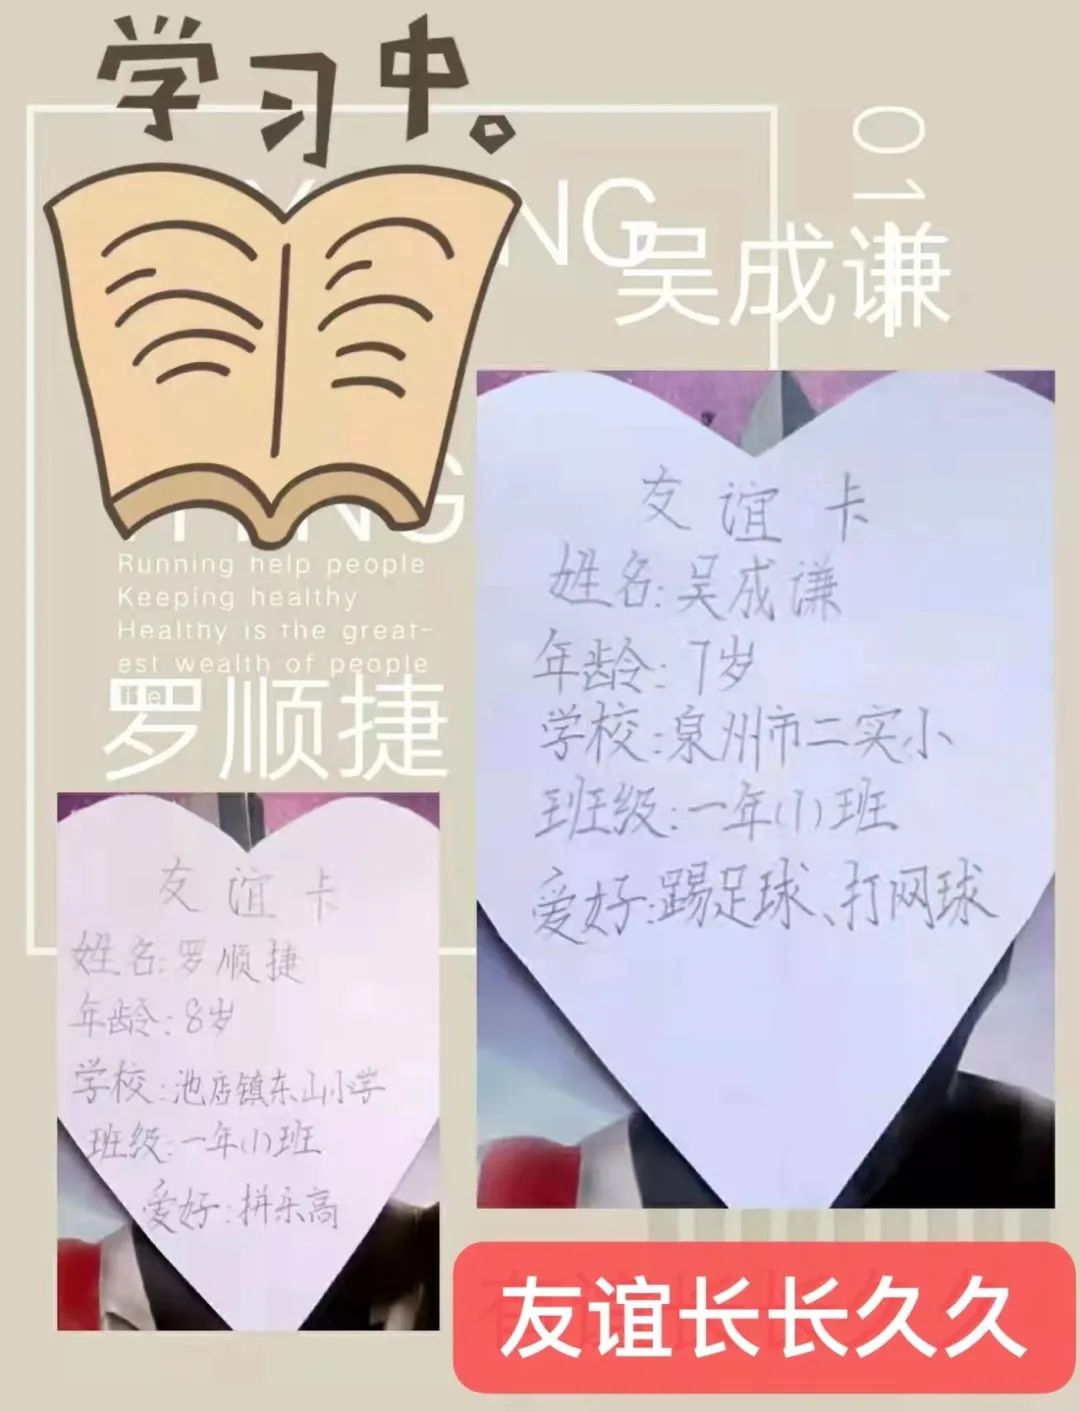 学习中。
01
NG
吴成谦
友谊卡
姓名:吴成谦
年龄:7岁
学校:泉州市二实小
班级:一年(1)班
爱好:踢足球、打网球
Running help people
Keeping healthy
Healthy is the great-
est wealth of people
罗顺捷
友谊卡
姓名:罗顺捷
年龄:8岁
学校:池店镇东山小学
班级:一年(1)班
爱好:拼乐高
友谊长长久久